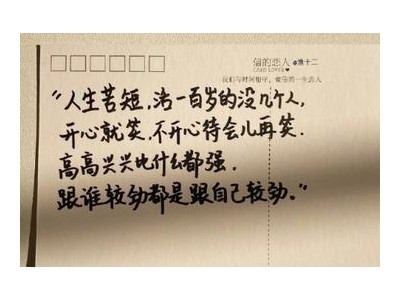 猫的恋人 ●漁十二
CARD LOVER
我们与时间相守，做你的一生恋人
“人生苦短，活一百岁的没几个人，
开心就笑，不开心待会儿再笑．
高高兴兴比什么都强．
跟谁较劲都是跟自己较劲。”